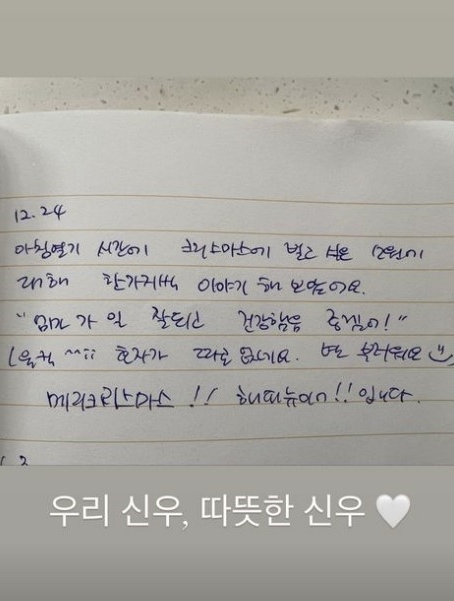 12.24
아침열기 시간에 크리스마스에 빌고 싶은 소원에
대해 한가지씩 이야기 해 보았어요.
"엄마가 일 잘되고"
(울컥 효자가 따로 없네요. 부러워요
메리크리스마스 !! 해피뉴이어!! 입니다.
우리 신우, 따뜻한 신우 🤍